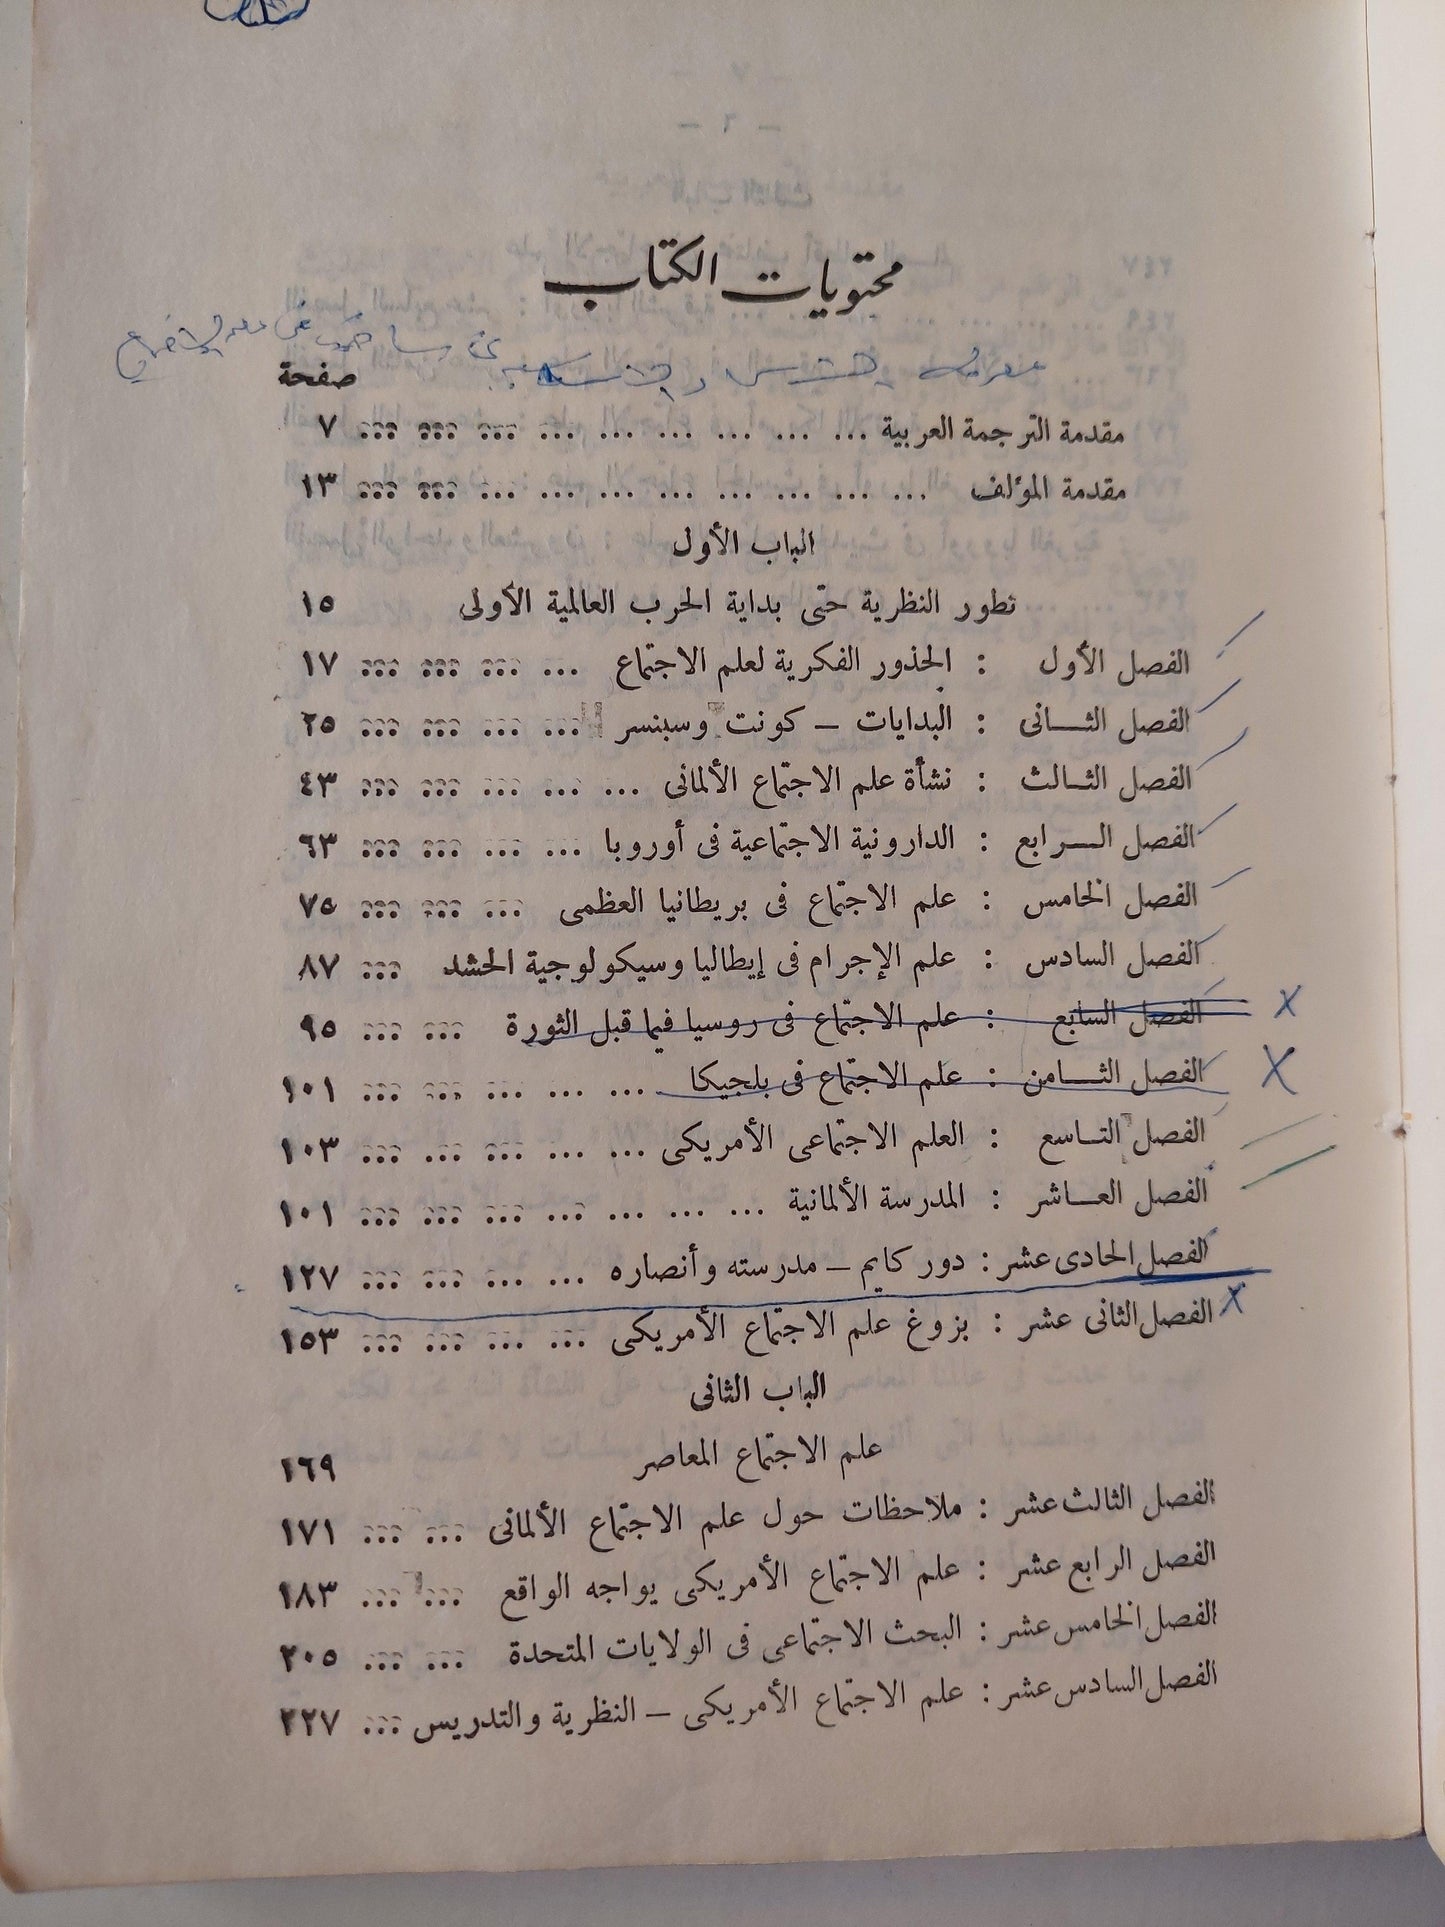 محتويات الكتاب
صفحة
مقدمة الترجمة العربية ... ... ... ... ... ... ... ... ... ٧
مقدمة المؤلف ... ... ... ... ... ... ... ... ... ... ١٣
الباب الأول
تطور النظرية حتى بداية الحرب العالمية الأولى ١٥
الفصل الأول : الجذور الفكرية لعلم الاجتماع ... ... ... ... ١٧
الفصل الثــانى : البدايات – كونت وسبنسر ... ... ... ... ٢٥
الفصل الثــالث : نشأة علم الاجتماع الألمانى ... ... ... ... ... ٤٣
الفصل الــرابع : الدارونية الاجتماعية فى أوروبا ... ... ... ... ٦٣
الفصل الخامس : علم الاجتماع فى بريطانيا العظمى ... ... ... ٧٥
الفصل السادس : علم الإجرام فى إيطاليا وسيكولوجية الحشد ... ٨٧
الفصل السابع : علم الاجتماع فى روسيا فيما قبل الثورة ... ... ٩٥
الفصل الثــامن : علم الاجتماع فى بلجيكا ... ... ... ... ... ١٠١
الفصل التــاسع : العلم الاجتماعى الأمريكى ... ... ... ... ... ١٠٣
الفصل العــاشر : المدرسة الألمانية ... ... ... ... ... ... ... ١٠١
الفصل الحادى عشر : دوركايم – مدرسته وأنصاره ... ... ... ... ١٢٧
الفصل الثانى عشر : بزوغ علم الاجتماع الأمريكى ... ... ... ... ١٥٣
الباب الثانى
علم الاجتماع المعاصر ١٦٩
الفصل الثالث عشر : ملاحظات حول علم الاجتماع الألمانى ... ... ١٧١
الفصل الرابع عشر : علم الاجتماع الأمريكى يواجه الواقع ... ... ١٨٣
الفصل الخامس عشر : البحث الاجتماعى فى الولايات المتحدة ... ... ٢٠٥
الفصل السادس عشر : علم الاجتماع الأمريكى – النظرية والتدريس ... ٢٢٧